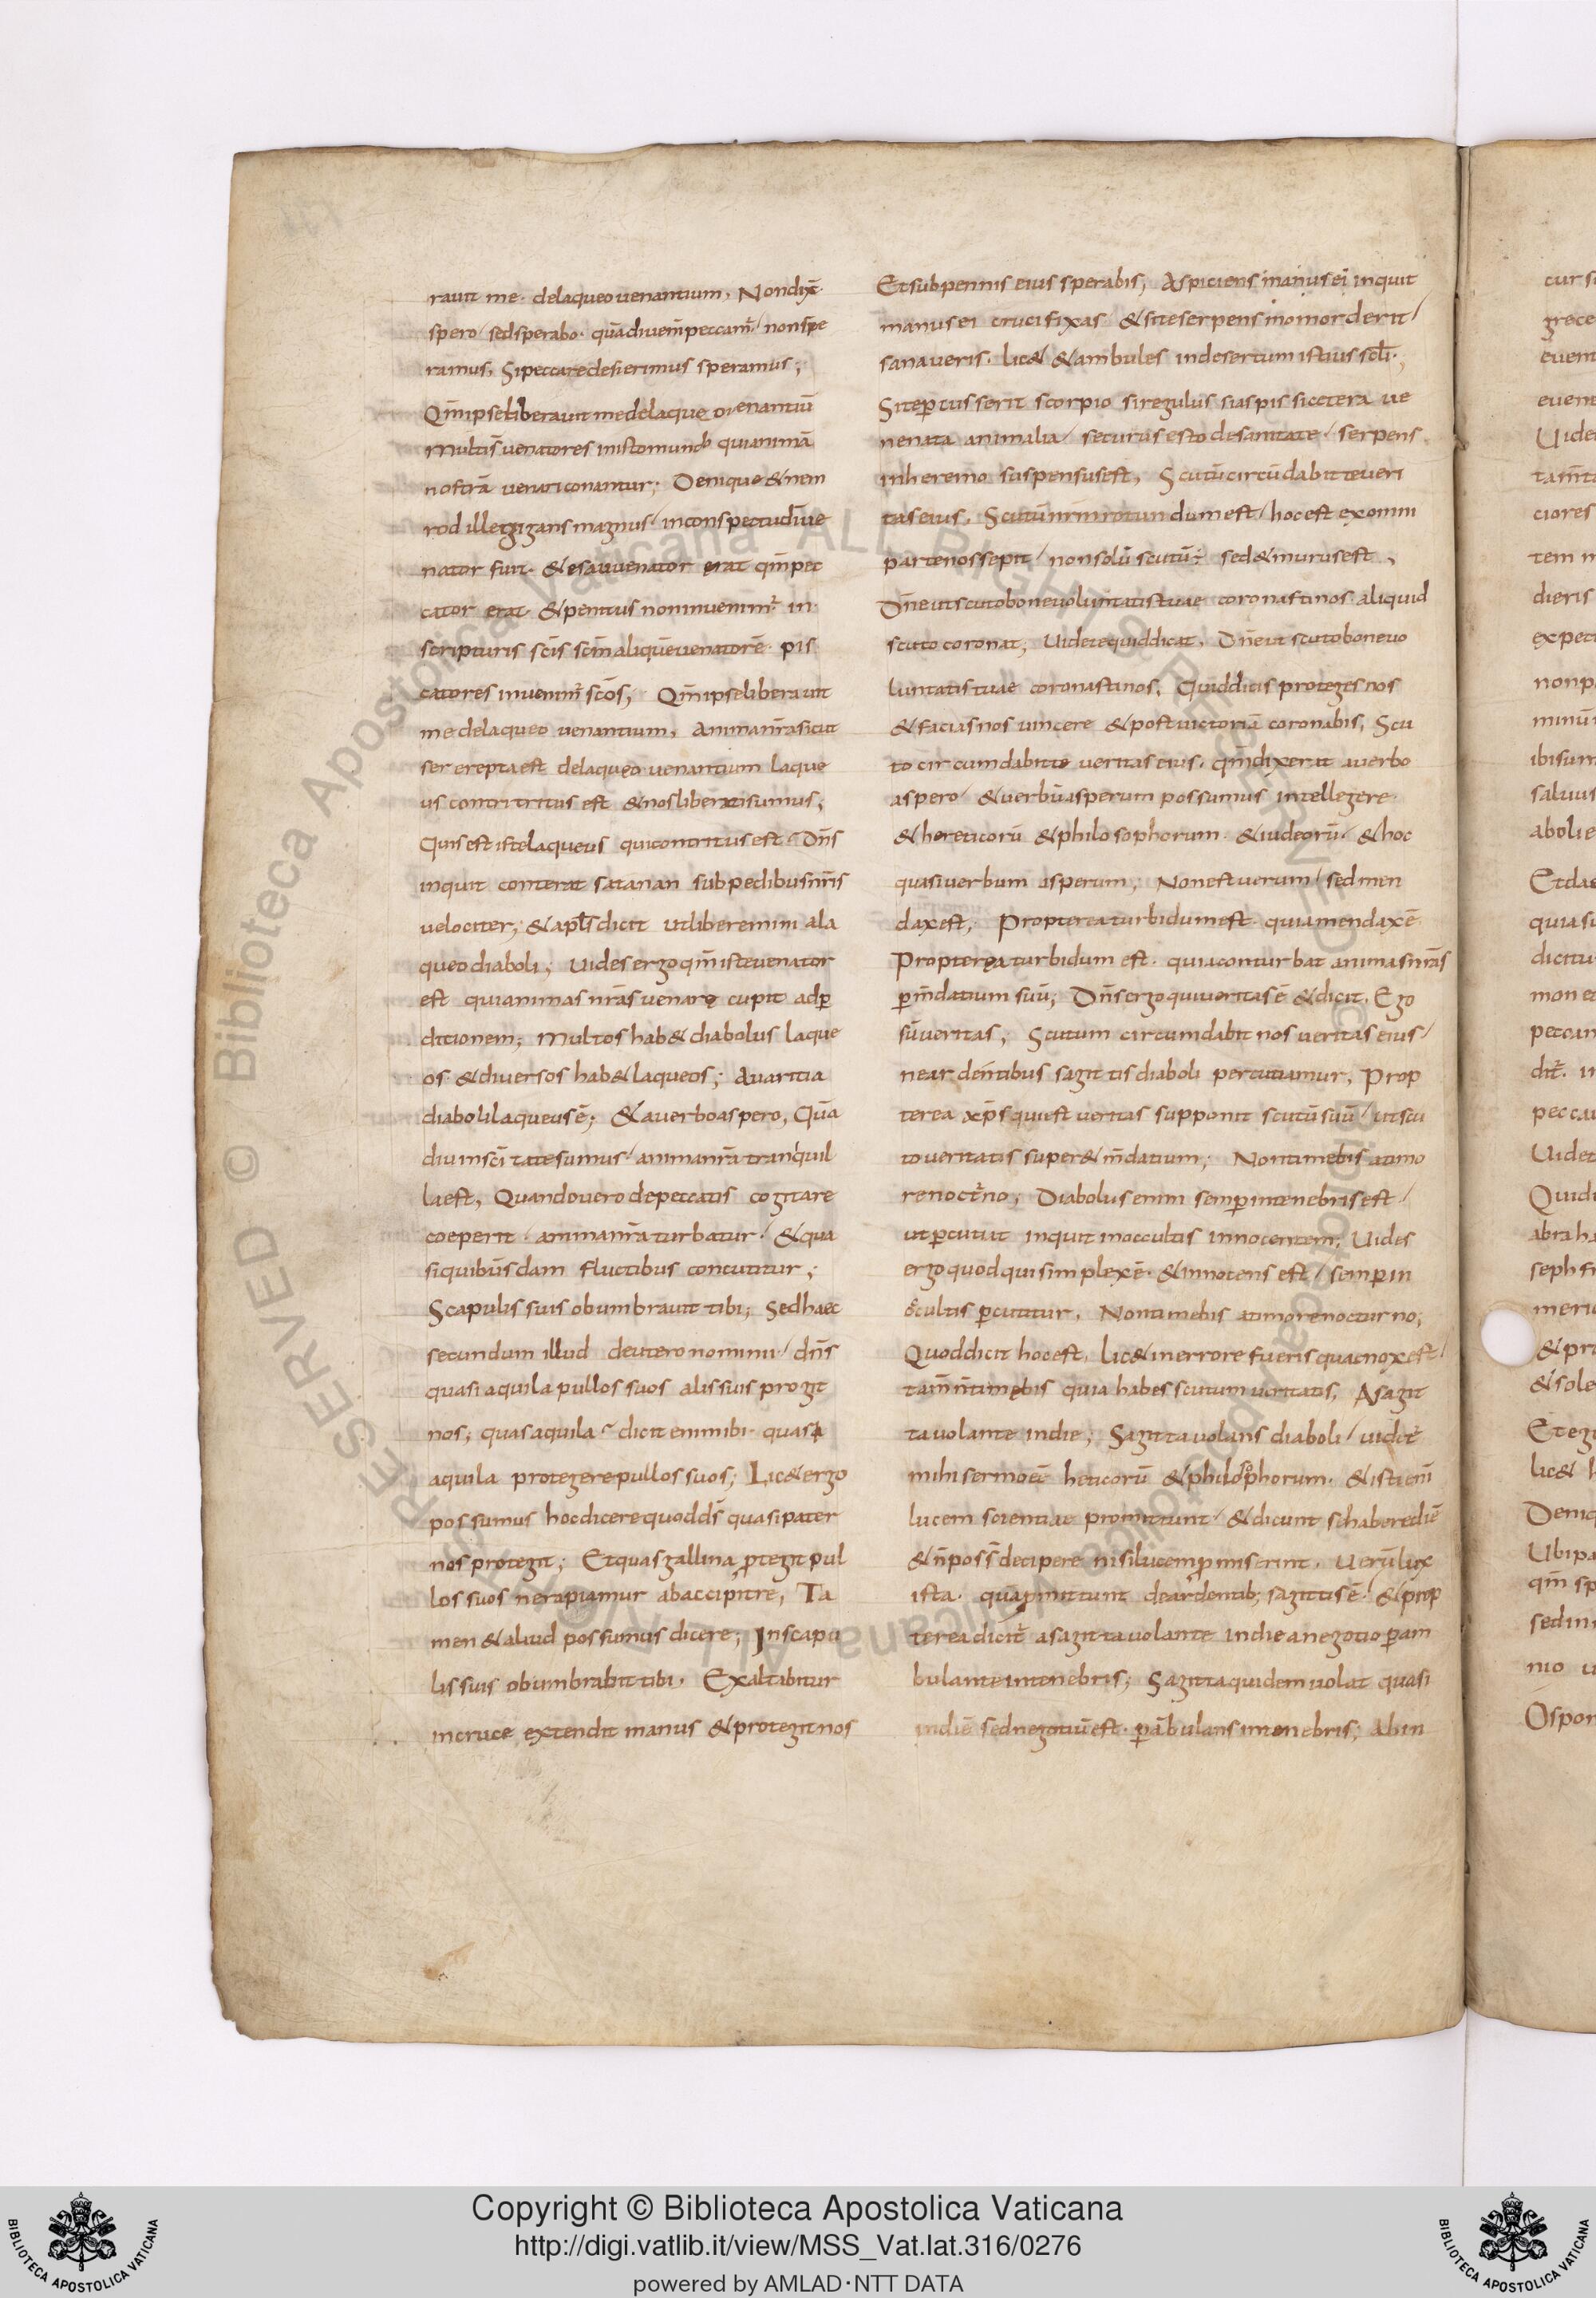 rauit me· delaqueo uenantium, Non dix̄·
spero/ sed sperabo· quādiu eni̅ peccam̄/ non spe
ramus, Si peccare desierimus speramus;
Qm̄ ipse liberauit me de laqueo uenantiū
Multi s̄ uenatores in isto mundo qui animā
nostrā uenari conantur; Denique & nem
rod ille gigans magnus/ in conspectu dn̄i ue
nator fuit· & esau uenator erat qm̄ pec
cator erat· & penitus non inuenim̄ in
scripturis scīs scm̄ aliquē uenatorē· pis
catores inuenim̄ scōs; Qm̄ ipse liberauit
me de laqueo uenantium, Anima nr̄a sicut
ser erepta est de laqueo uenantium laque
us contritritus est & nos liberati sumus,
Quis est iste laqueus qui contritus est· Dn̄s
inquit conterat satanan sub pedibus nr̄is
uelociter; & apl̄s dicit ut liberemini a la
queo diaboli; Uides ergo qm̄ iste uenator
est qui animas nr̄as uenare cupit ad p̱
ditionem; Multos hab& diabolus laque
os & diuersos hab& laqueos; Auaritia
diaboli laqueus ē; & a uerbo aspero, Quā
diu in scītate sumus/ anima nr̄a tranquil
la est, Quando uero de peccatis cogitare
coeperit· anima nr̄a turbatur/ & qua
si quibusdam fluctibus concutitur;
Scapulis suis obumbrauit tibi; Sed haec
secundum illud deuteronomium/ dn̄s
quasi aquila pullos suos alis suis progit
nos; quas aquila· dicit enim ibi· quasi
aquila protegere pullos suos; Lic& ergo
possumus hoc dicere quod ds̄ quasi pater
nos protegit; Et quas gallina ꝓtegit pul
los suos ne rapiamur ab accipitre, Ta
men & aliud possumus dicere; In scapu
lis suis obumbrabit tibi· Exaltabitur
in cruce extendit manus & protegit nos
Et sub pennis eius sperabis; Aspiciens manus ei inquit
manus ei crucifixas/ & si te serpens momorderit/
sanaueris· lic& & ambules in desertum istius scl̄i·;
Si te p̱cusserit scorpio si regulus si aspis si cetera ue
nenata animalia/ securus esto de sanitate/ serpens
in heremo suspensus est, Scutū circūdabit te ueri
tas eius, Scutū nr̄m rotundum est/ hoc est ex omni
parte nos sepit/ non solū scutū; sed & murus est,
Dn̄e ut scuto bone uoluntatis tuae coronasti nos· aliquid
scuto coronat; Uidete quid dicat, Dn̄e ut scuto bone uo
luntatis tuae coronasti nos, Quid dicis proteges nos
& facias nos uincere & post uictoriā coronabis, Scu
to circumdabit te ueritas eius· qm̄ dixerat a uerbo
aspero/ & uerbū asperum possumus intellegere·
& hereticorū & philosophorum· & iudeorū· & hoc
quasi uerbum asperum; Non est uerum/ sed men
dax est, Propterea turbidum est· quia mendax ē·
Propterea turbidum est· quia conturbat animas nr̄as
p̱ m̄datium suū; Dn̄s ergo qui ueritas ē & dicit, Ego
sū ueritas; Scutum circumdabit nos ueritas eius/
ne ardentibus sagittis diaboli percutiamur, Prop
terea xp̄s qui est ueritas supponit scutū suū/ ut scu
to ueritatis super& m̄datium; Non timebis a timo
re noct̄no; Diabolus enim semp̱ in tenebris est/
ut p̱cutiat inquit in occultis innocentem; Uides
ergo quod qui simplex ē· & innocens est/ semp̱ in
occultis p̱cutitur, Non timebis a timore nocturno;
Quod dicit hoc est, lic& in errore fueris quae nox est/
tam̄ n̄ timebis quia habes scutum ueritatis, A sagit
ta uolante in die; Sagitta uolans diaboli/ uidet̄
mihi sermo eē heticorū & philosophorum· & isti eni̅
lucem scientiae promittunt/ & dicunt se habere diē
& n̄ poss̄ decipere nisi lucem ꝓmiserint, Uerū lux
ista· quā ꝓmittunt de ardentib; sagittis ē· & prop
terea dicit̄ a sagitta uolante in die a negotio p̱am
bulante in tenebris; Sagitta quidem uolat quasi
in diē sed negotiū est· p̱ābulans in tenebris; Ab in
Copyright © Biblioteca Apostolica Vaticana
http://digi.vatlib.it/view/MSS_Vat.lat.316/0276
powered by AMLAD·NTT DATA
BIBLIOTECA APOSTOLICA VATICANA
BIBLIOTECA APOSTOLICA VATICANA